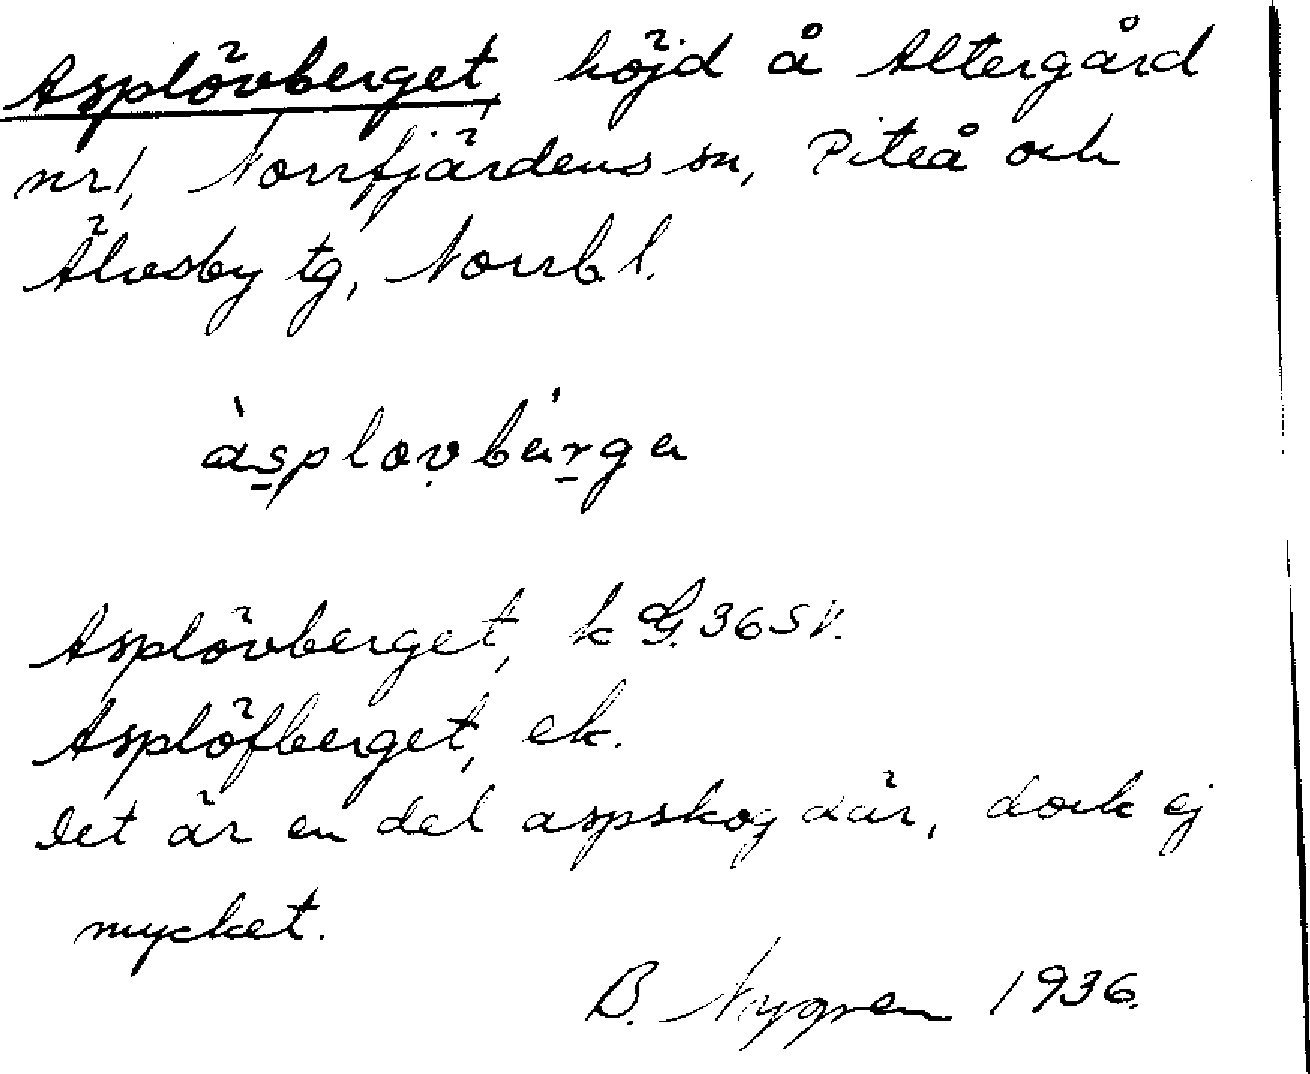 Asplövberget, höjd å Altergård
nr 1, Norrfjärdens sn, Piteå och
Älvsby tg, Norrb. l.
àsplovbárga
Asplövberget, k G. 36 SV.
Asplöfberget, ek.
Det är en del aspskog där, dock ej
mycket.
B. Nygren 1936.